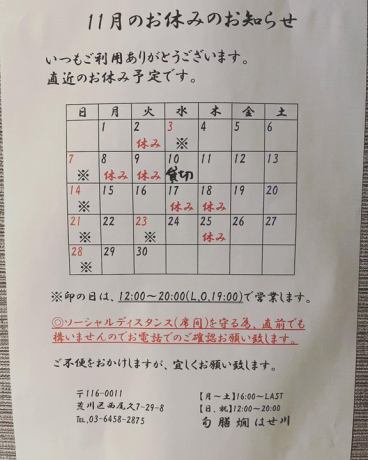 11月のお休みのお知らせ
いつもご利用ありがとうございます。
直近のお休み予定です。
日 月 火 水 木 金 土
1 2 3 4 5 6
休み ※
7 8 9 10 11 12 13
※ 休み 休み 貸切
14 15 16 17 18 19 20
※ 休み 休み
21 22 23 24 25 26 27
※ ※ 休み
28 29 30
※
※印の日は、12:00～20:00(L.O.19:00)で営業します。
◎ソーシャルディスタンス(席間)を守る為、直前でも
構いませんのでお電話でのご確認お願い致します。
ご不便をおかけしますが、宜しくお願い致します。
〒116-0011
荒川区西尾久7-29-8
TEL.03-6458-2875
【月～土】16:00～LAST
【日、祝】12:00～20:00
旬膳燗 はせ川